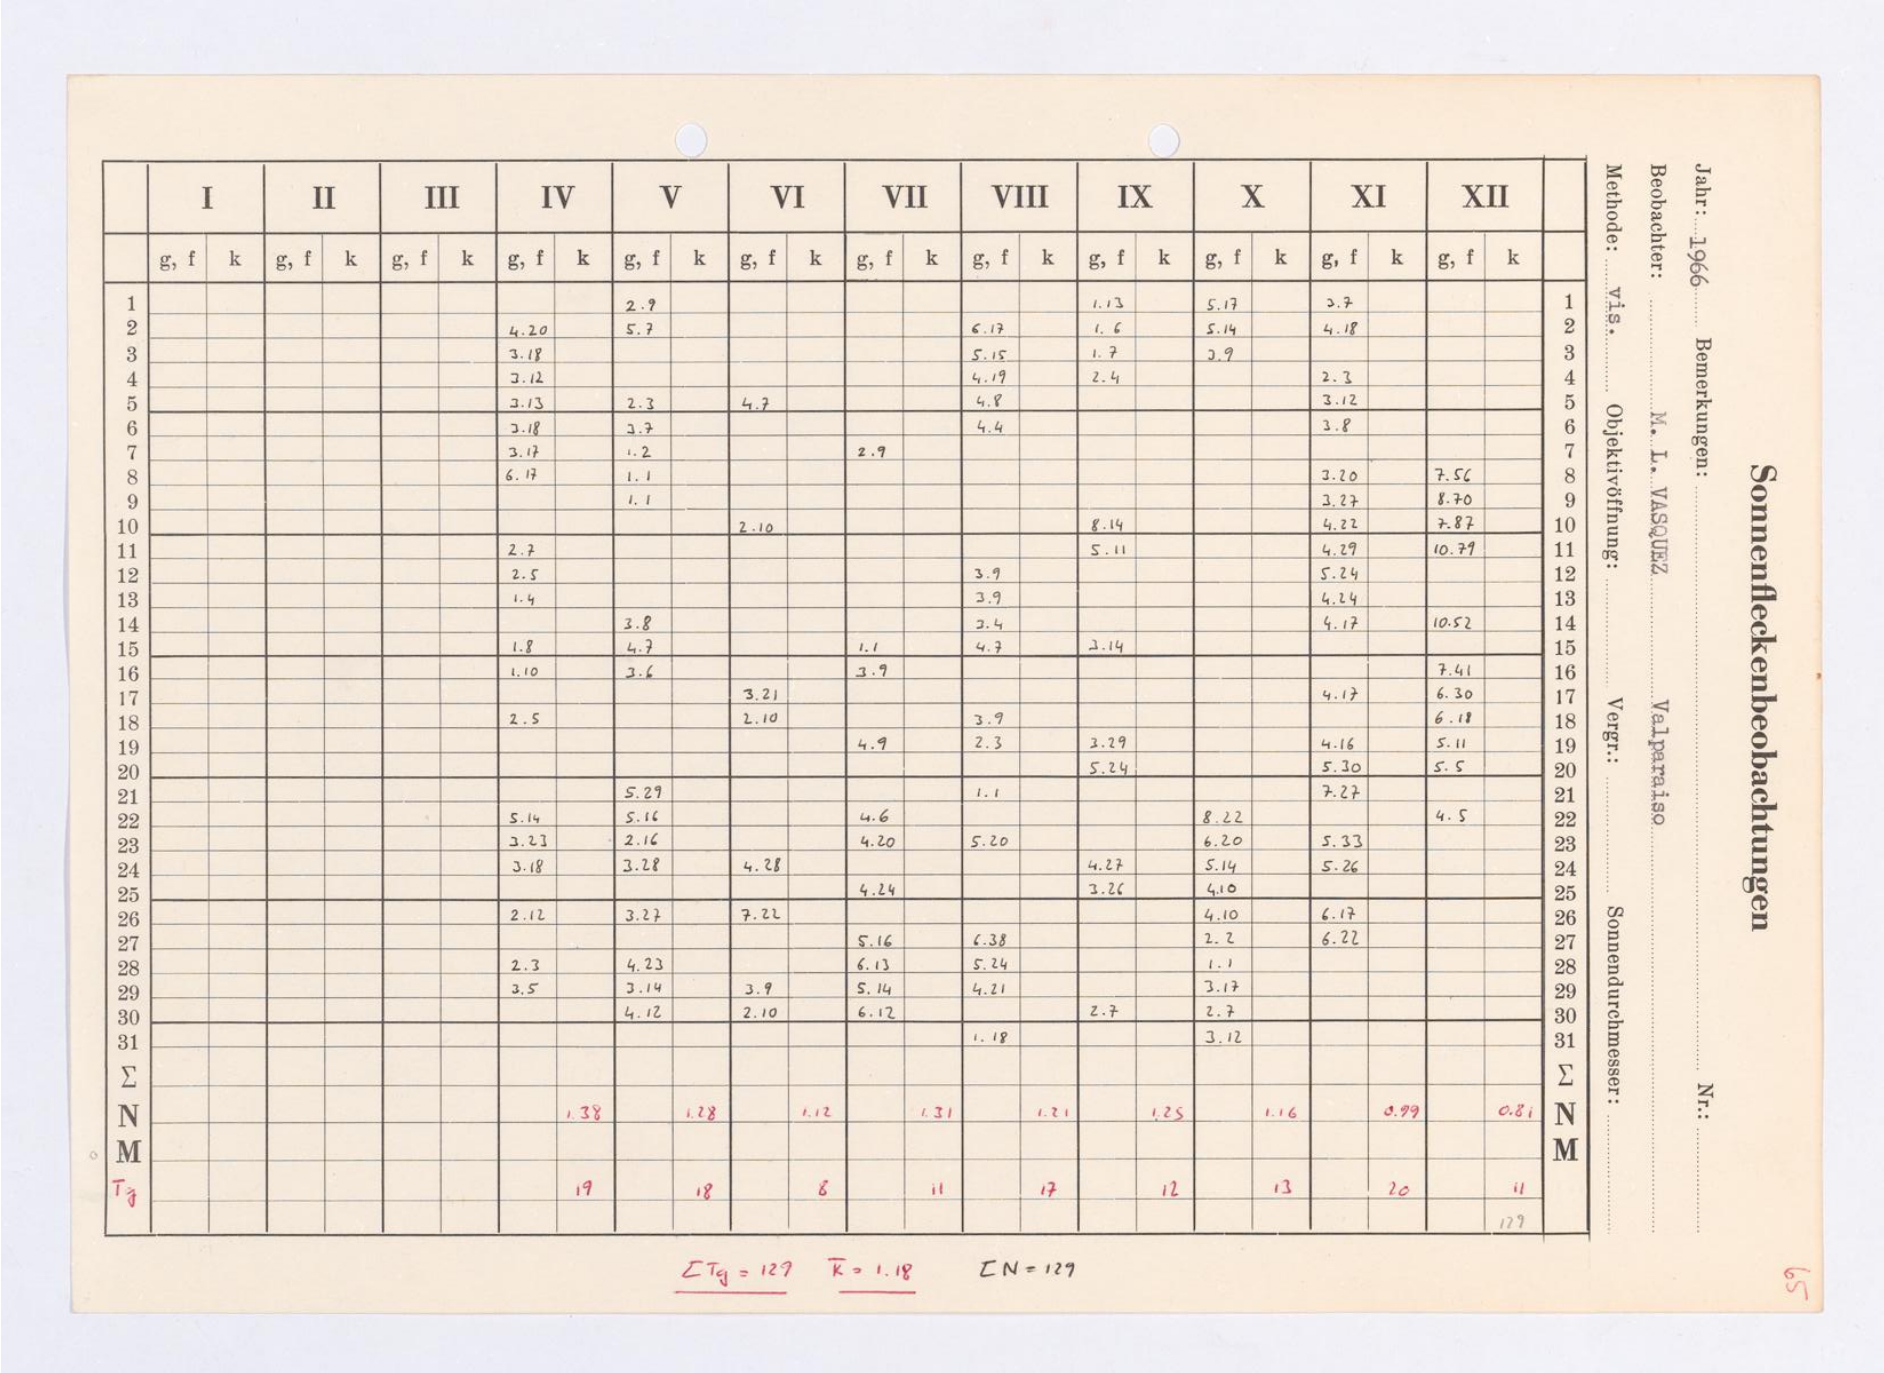 Sonnenfleckenbeobachtungen
Jahr: 1966 Bemerkungen: Nr.:
Beobachter: M. L. VASQUEZ Valparaiso
Methode: vis. Objektivöffnung: Vergr.: Sonnendurchmesser:
I II III IV V VI VII VIII IX X XI XII
g, f k g, f k g, f k g, f k g, f k g, f k g, f k g, f k g, f k g, f k g, f k g, f k
1 2.9 1.13 5.17 3.7 1
2 4.20 5.7 6.17 1.6 5.14 4.18 2
3 3.18 5.15 1.7 3.9 3
4 3.12 4.19 2.4 2.3 4
5 3.13 2.3 4.7 4.8 3.12 5
6 3.18 3.7 4.4 3.8 6
7 3.17 1.2 2.9 7
8 6.17 1.1 3.20 7.56 8
9 1.1 3.27 8.70 9
10 2.10 8.14 4.22 7.87 10
11 2.7 5.11 4.29 10.79 11
12 2.5 3.9 5.24 12
13 1.4 3.9 4.24 13
14 3.8 3.4 4.17 10.52 14
15 1.8 4.7 1.1 4.7 3.14 15
16 1.10 3.6 3.9 7.41 16
17 3.21 4.17 6.30 17
18 2.5 2.10 3.9 6.18 18
19 4.9 2.3 3.29 4.16 5.11 19
20 5.24 5.30 5.5 20
21 5.29 1.1 7.27 21
22 5.14 5.16 4.6 8.22 4.5 22
23 3.23 2.16 4.20 5.20 6.20 5.33 23
24 3.18 3.28 4.28 4.27 5.14 5.26 24
25 4.24 3.26 4.10 25
26 2.12 3.27 7.22 4.10 6.17 26
27 5.16 6.38 2.2 6.22 27
28 2.3 4.23 6.13 5.24 1.1 28
29 3.5 3.14 3.9 5.14 4.21 3.17 29
30 4.12 2.10 6.12 2.7 2.7 30
31 1.18 3.12 31
Σ Σ
N 1.38 1.28 1.12 1.31 1.21 1.25 1.16 0.99 0.81 N
M M
Tg 19 18 8 11 17 12 13 20 11
129
ΣTg = 129 k̄ = 1.18 ΣN = 129
65